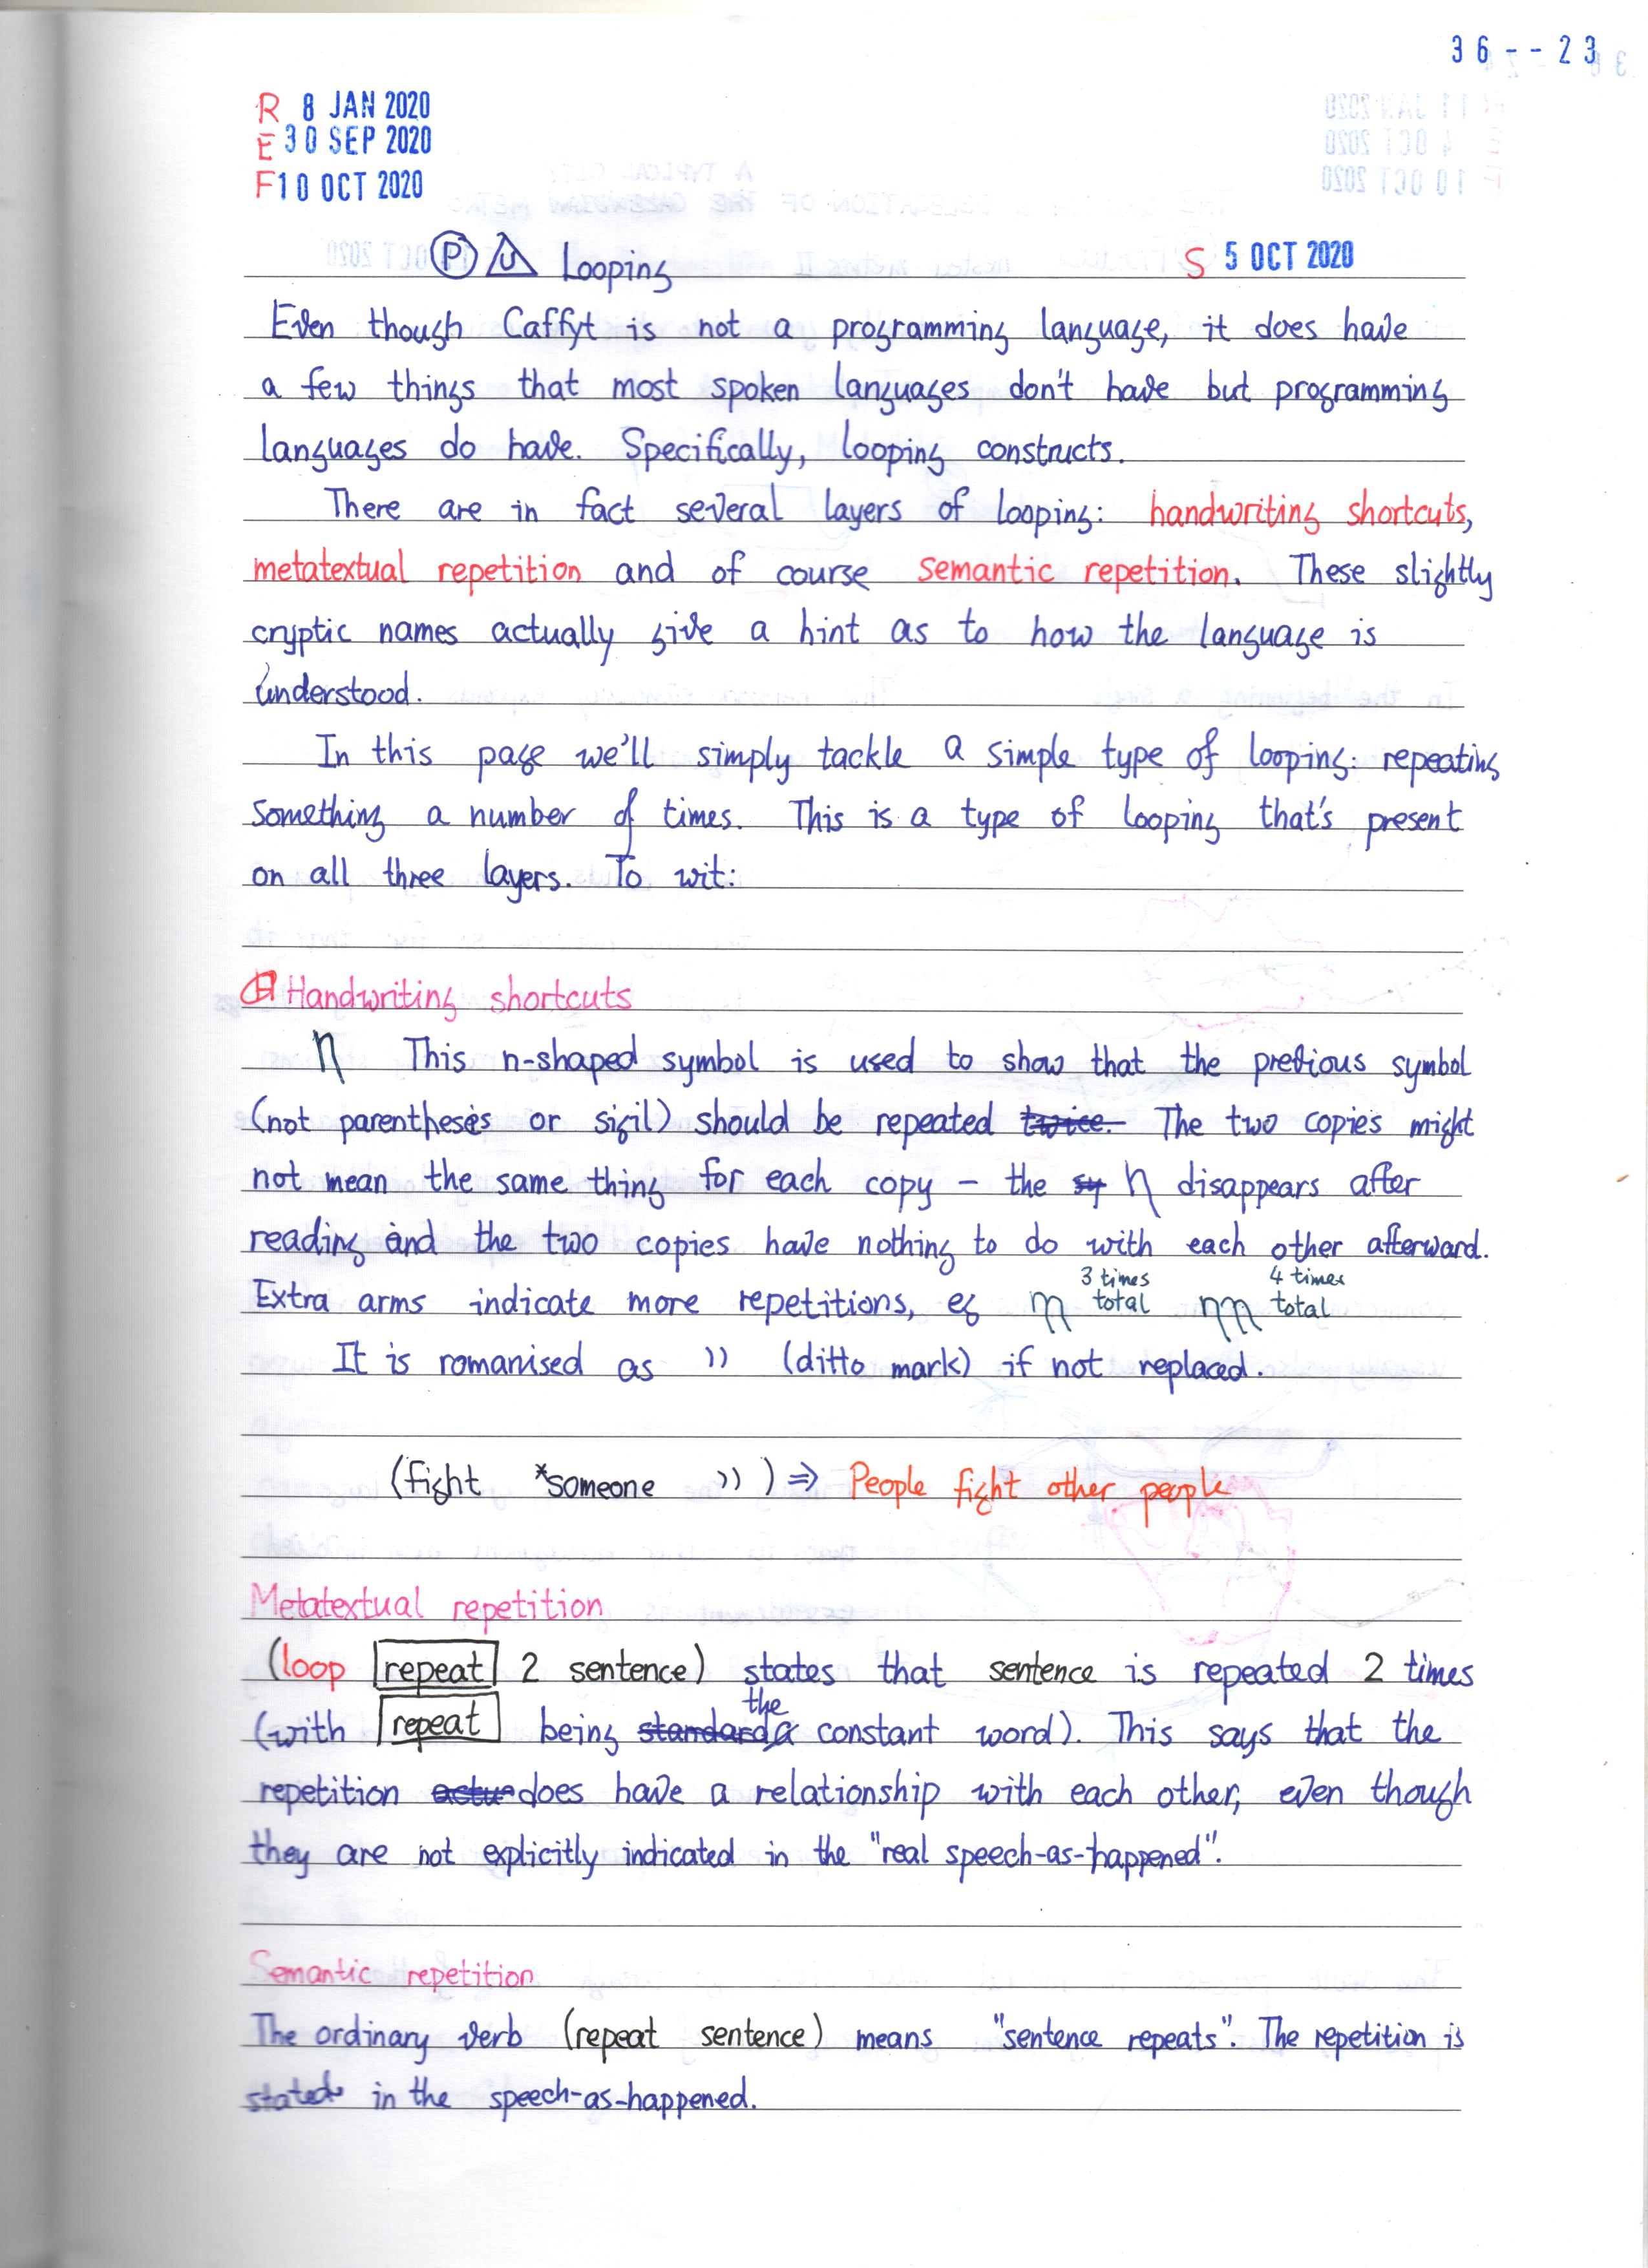 36--23
R 8 JAN 2020
E 30 SEP 2020
F 10 OCT 2020
P U Looping S 5 OCT 2020
Even though Caffyt is not a programming language, it does have
a few things that most spoken languages don't have but programming
languages do have. Specifically, looping constructs.
There are in fact several layers of looping: handwriting shortcuts,
metatextual repetition and of course semantic repetition. These slightly
cryptic names actually give a hint as to how the language is
understood.
In this page we'll simply tackle a simple type of looping: repeating
something a number of times. This is a type of looping that's present
on all three layers. To wit:
Handwriting shortcuts
η This n-shaped symbol is used to show that the previous symbol
(not parentheses or sigil) should be repeated twice. The two copies might
not mean the same thing for each copy – the sy η disappears after
reading and the two copies have nothing to do with each other afterward.
Extra arms indicate more repetitions, eg 3 times total 4 times total
It is romanised as )) (ditto mark) if not replaced.
(fight *someone )) ) ⇒ People fight other people
Metatextual repetition
(loop repeat 2 sentence) states that sentence is repeated 2 times
(with repeat being standard a the constant word). This says that the
repetition actue does have a relationship with each other, even though
they are not explicitly indicated in the "real speech-as-happened".
Semantic repetition
The ordinary verb (repeat sentence) means "sentence repeats". The repetition is
stated in the speech-as-happened.